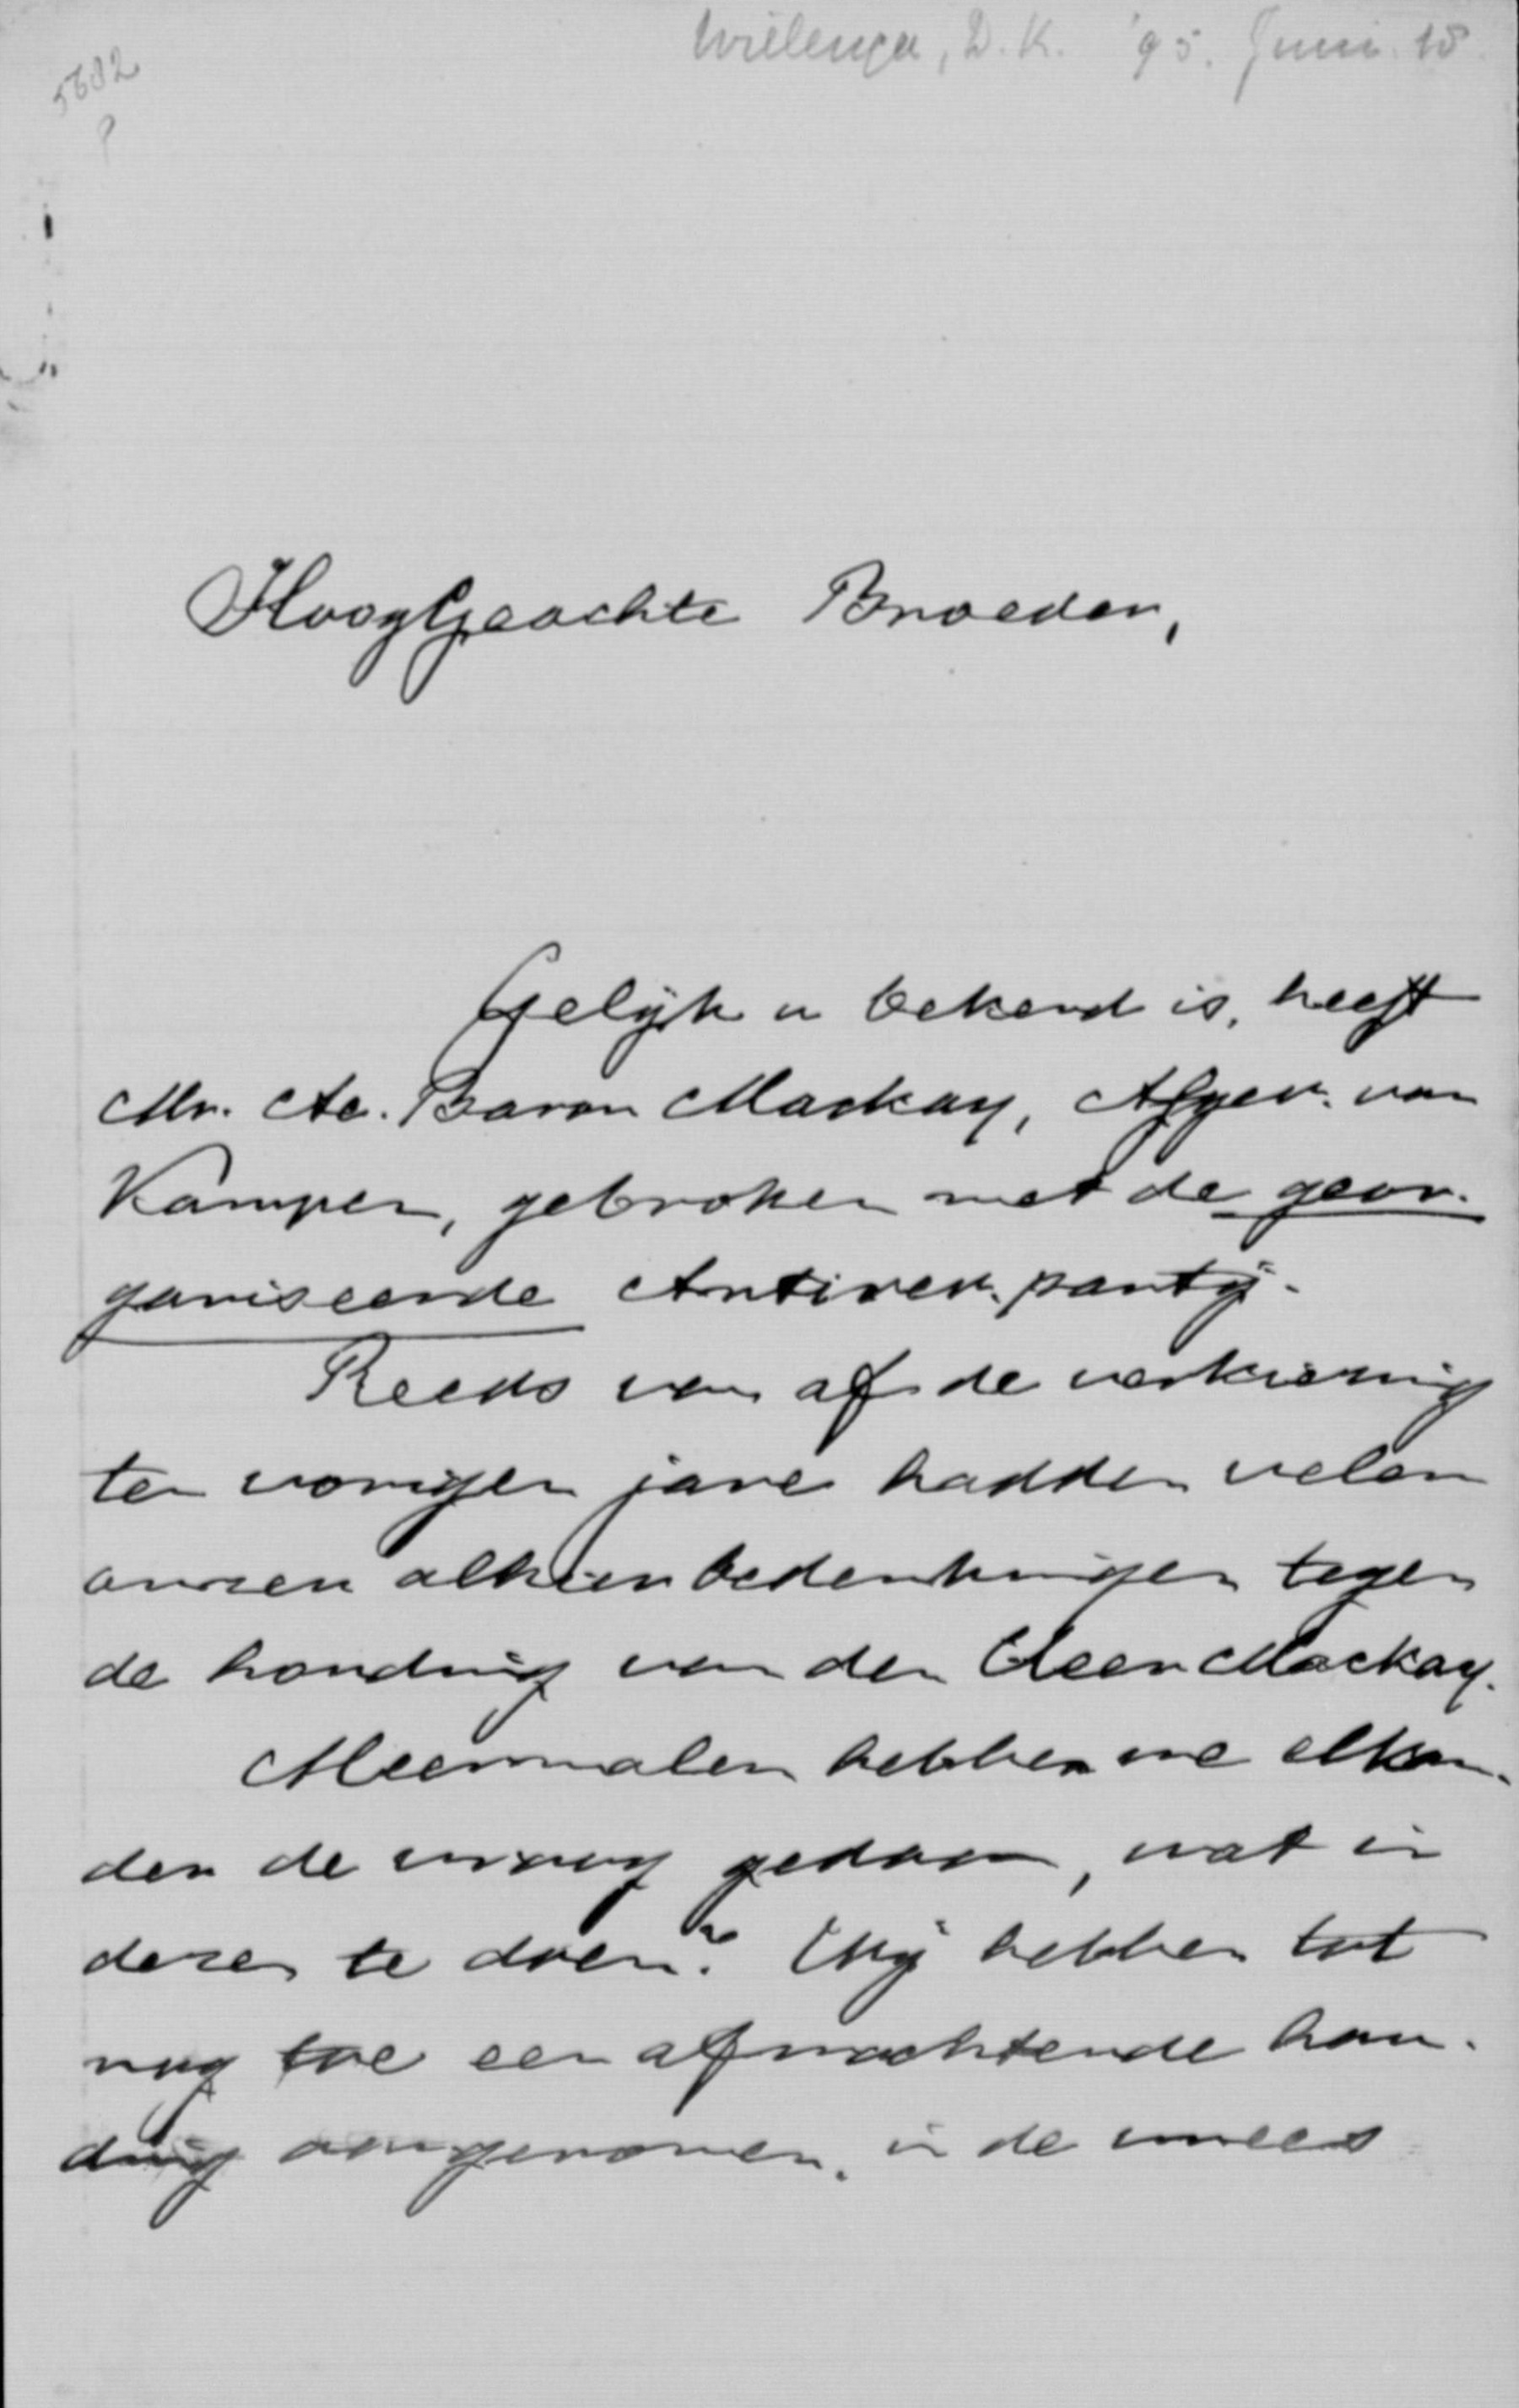 Wielenga, D.K. '95. Juni. 18.
5602
?
HoogGeachte Broeder,
Gelijk u bekend is, heeft
Mr. Ae. Baron Mackay, Afgev. van
Kampen, gebroken met de geor-
ganiseerde Antirev. partij.
Reeds van af de verkiezing
ten vorigen jare hadden velen
onzen alhier bedenkingen tegen
de houding van den Heer Mackay.
Meermalen hebben we elkan-
der de vraag gedaan, wat in
dezen te doen? Wij hebben tot
nog toe een afwachtende hou-
ding aangenomen, in de vrees